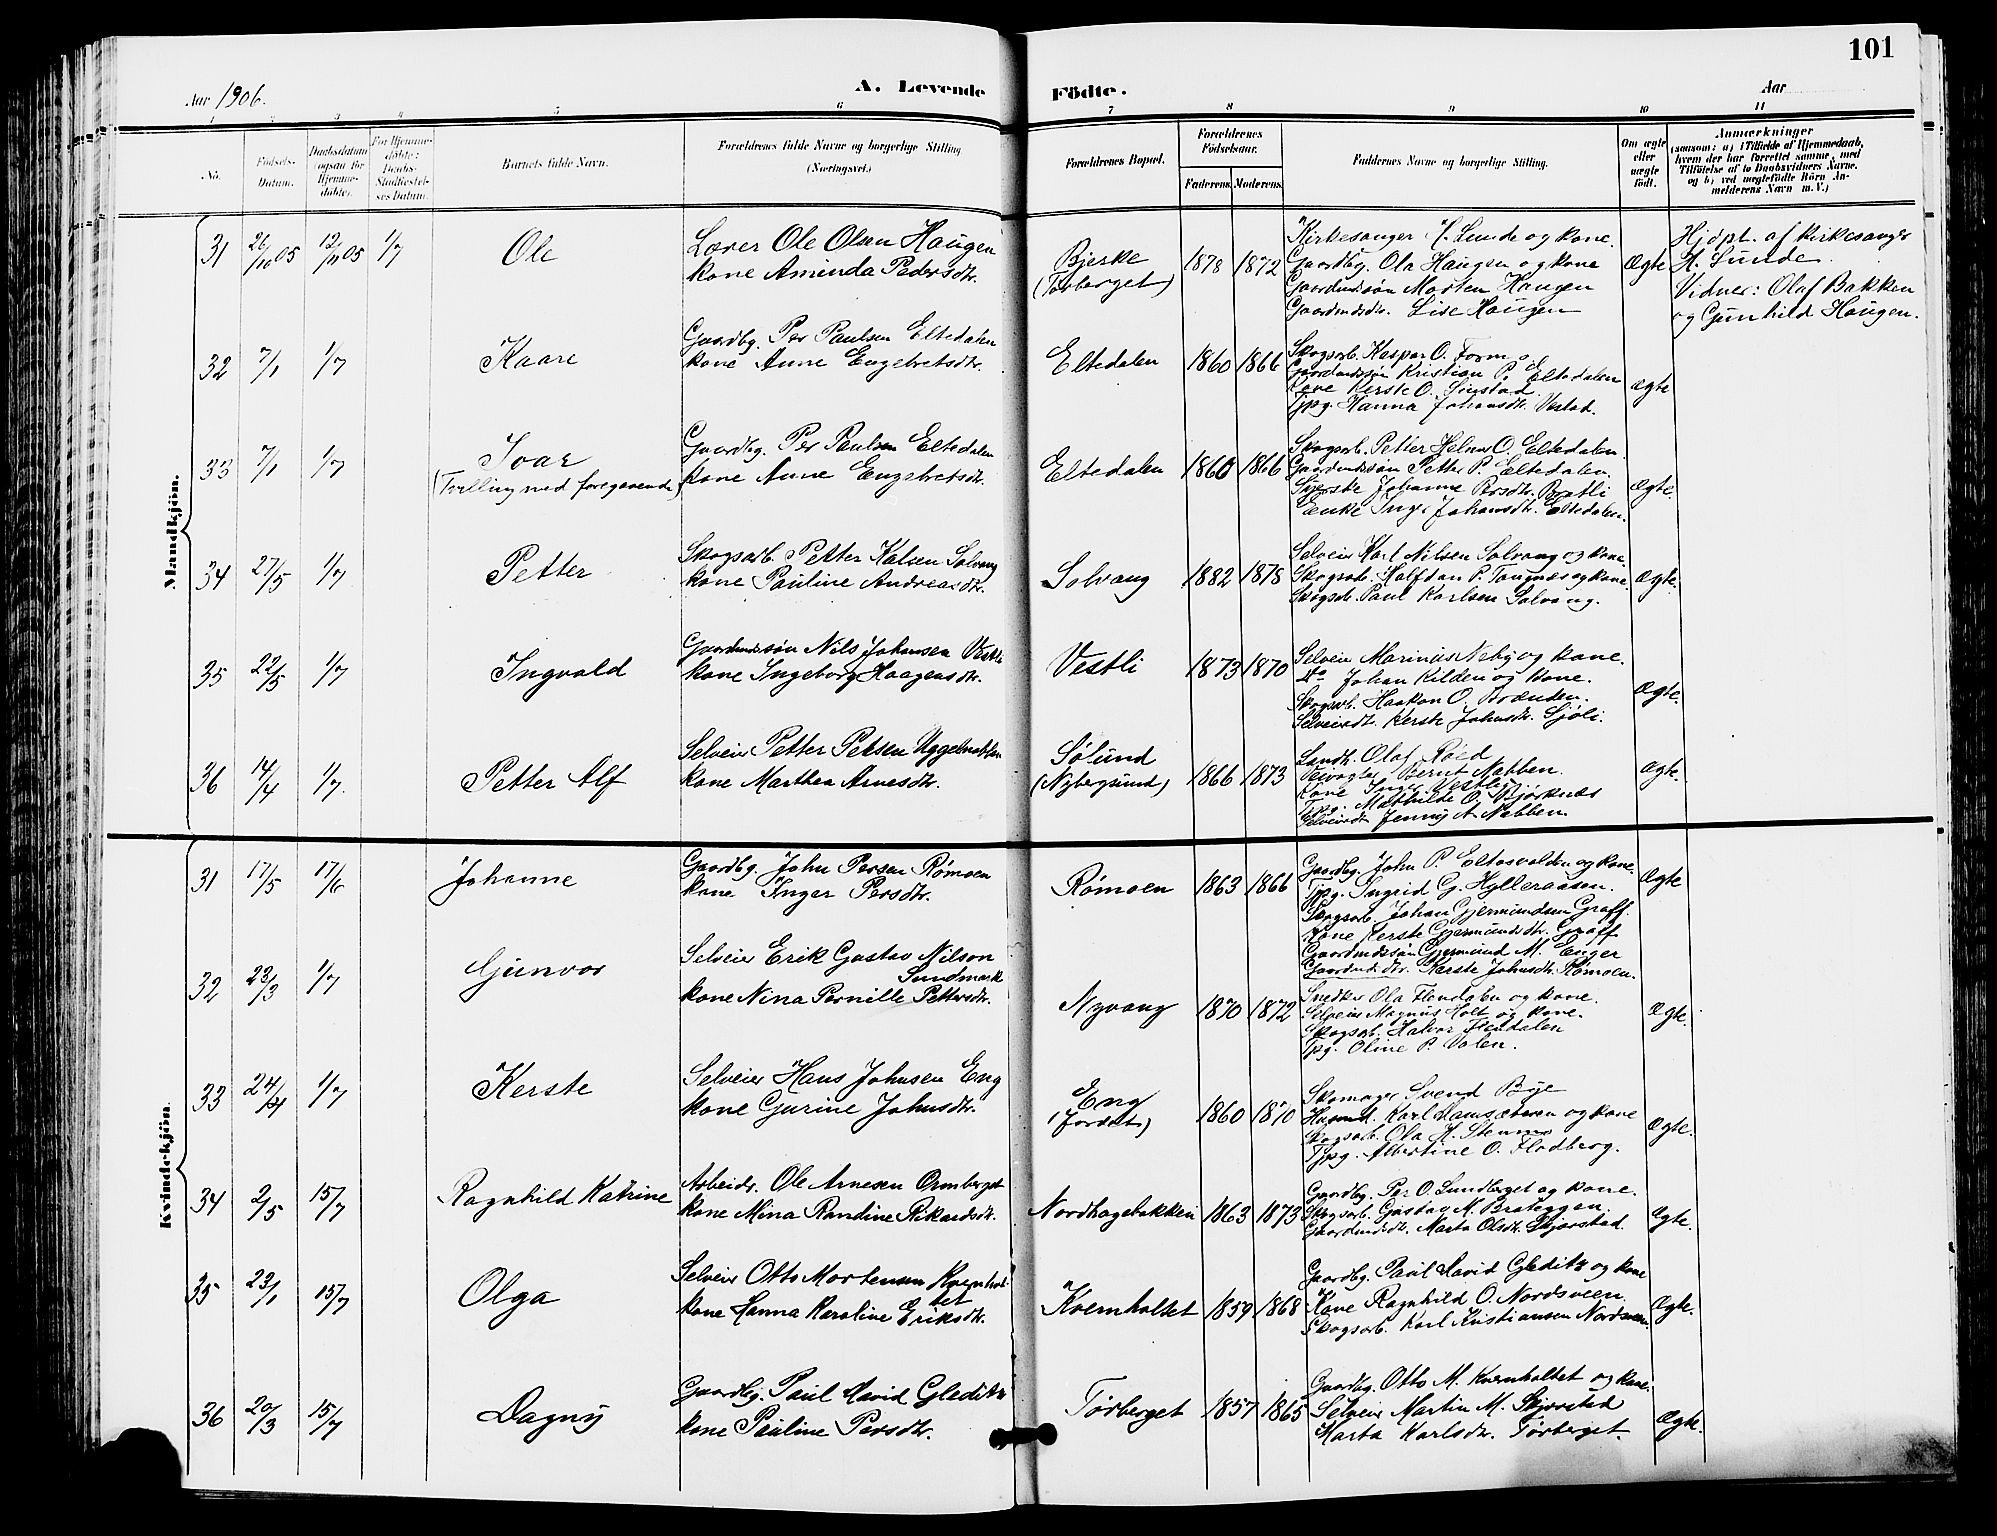 101
Aar 1906.
A. Levende Födte.
Aar
1 2 3 4 5 6 7 8 9 10 11
No.
Födsels-
Datum.
Daabsdatum
(ogsaa for
Hjemme-
döbte).
For Hjemme-
döbte:
Daabs-
Stadfæstel-
ses Datum.
Barnets fulde Navn.
Forældrenes fulde Navne og borgerlige Stilling
(Næringsvei.)
Forældrenes Bopæl.
Forældrenes
Födselsaar.
Faderens. Moderens.
Faddernes Navne og borgerlige Stilling.
Om ægte
eller
uægte
födt.
Anmærkninger
(saasom: a) i Tilfælde af Hjemmedaab,
hvem der har forrettet samme, med
Tilföielse af to Daabsvidners Navne,
og b) ved uægtefödte Börn An-
melderens Navn m. V.)
Mandkjön.
31 26/10 05 12/11 05 1/7 Ole
Lærer Ole Olsen Haugen
kone Aminda Pedersdtr.
Bjerke
(Törberget)
1878 1872
Kirkesanger H. Sunde og kone.
Gaardbg. Ola Haugen og kone
Gaardmdssøn Morten Haugen
Gaardmdsdtr. Lise Haugen
Ægte
Hjdpt. af Kirkesanger
H. Sunde.
Vidner: Olaf Bakken
og Gunhild Haugen.
32 7/1 1/7 Kaare
Gaardbg. Per Paulsen Eltedalen
kone Anne Engebretsdtr.
Eltedalen 1860 1866
Skogsarb. Kaspar O. Formo
Gaardmdssøn Kristian P. Eltedalen
Kone Kerste O. Sinstad
Tjpg. Hanna Johansdtr. Vestad.
Ægte
33 7/1 1/7 Ivar
(Tvilling med foregaaende)
Gaardbg. Per Paulsen Eltedalen
kone Anne Engebretsdtr.
Eltedalen 1860 1866
Skogsarb. Petter Helmer O. Eltedalen.
Gaardmdssøn Petter P. Eltedalen
Syerske Johanne Persdtr. Bratli
Enke Inger Johansdtr. Eltedalen.
Ægte.
34 27/5 1/7 Petter
Skogsarb. Petter Kalsen Solvang
kone Pauline Andreasdtr.
Solvang 1882 1878
Selveier Karl Nilsen Solvang og kone.
Skogsarb. Halfdan P. Tangnæs og kone.
Skogsarb. Paul Karlsen Solvang.
Ægte.
35 22/5 1/7 Ingvald
Gaardmdssøn Nils Johansen Vestli
kone Ingeborg Haagensdtr.
Vestli 1873 1870
Selveier Marinus Neby og kone.
do Johan Kilden og kone.
Skogsarb. Haakon O. Brænden.
Selveierdtr. Kerste Johnsdtr. Sjöli.
Ægte.
36 14/4 1/7. Petter Alf
Selveier Petter Petsen
kone Marthea Arnesdtr.
Sölund
(Nybergsund)
1866 1873
Landh. Olaf Röed
Veivogter Bernt Nabben.
Kone Inger Vestby
Tjpg. Mathilde O. Björknæs
Selveierdtr. Jenny A. Nabben.
Ægte.
Kvindekjön.
31 17/5 17/6 Johanne
Gaardbg. John Persen Rømoen
kone Inger Persdtr.
Rømoen 1863 1866
Gaardbg. John P. Eltesvolden og kone.
Tjpg. Ingrid G. Hylleraasen.
Skogsarb. Johan Gjermundsen Graff.
Kone Kerste Gjermundsdtr. Graff
Gaardmdssøn Gjermund M. Enger
Gaardmdsdtr. Kerste Johnsdtr. Rømoen.
Ægte
32 23/3 1/7 Gunvor
Selveier Erik Gustav Nilson
Sundmark
kone Nina Pernille Pettersdtr.
Nyvang 1870 1872
Snedker Ola Flendalen og kone.
Selveier Magnus Holt og kone.
Skogsarb. Halvor Flendalen
Tpg. Oline P. Volen.
Ægte.
33 24/4 1/7 Kerste
Selveier Hans Johnsen Eng
kone Gurine Johnsdtr.
Eng
(Jordet)
1860 1870
Skomager Svend Bye
Karl Kamsæteren og kone
Skogsarb. Ola H. Stenmo
Tjpg. Albertine O. Flodberg.
Ægte.
34 2/5 15/7 Ragnhild Katrine
Arbeidr. Ole Arnesen Ormberget
kone Mina Randine Rikardsdtr.
Nordhagebakken 1863 1873
Gaardbg. Per O. Lundberget og kone.
Skogsarb. Gustav M. Brateggen.
Gaardmdsdtr. Marta Olsdtr. Skjærstad.
Ægte.
35 23/1 15/7 Olga
Selveier Otto Mortensen Kvernhol-
tet
kone Hanna Karoline Eriksdtr.
Kvernholtet 1859 1868
Gaardbg. Paul David Gleditz og kone
Kone Ragnhild O. Nordsveen.
Skogsarb. Karl Kristiansen Nordsveen.
Ægte.
36 20/3 15/7 Dagny
Gaardbg. Paul David Gleditz
kone Pauline Persdtr.
Törberget 1857 1865
Gaardbg. Otto M. Kvernholtet og kone.
Selveier Martin M. Skjærstad
Marta Karlsdtr. Törberget.
Ægte.